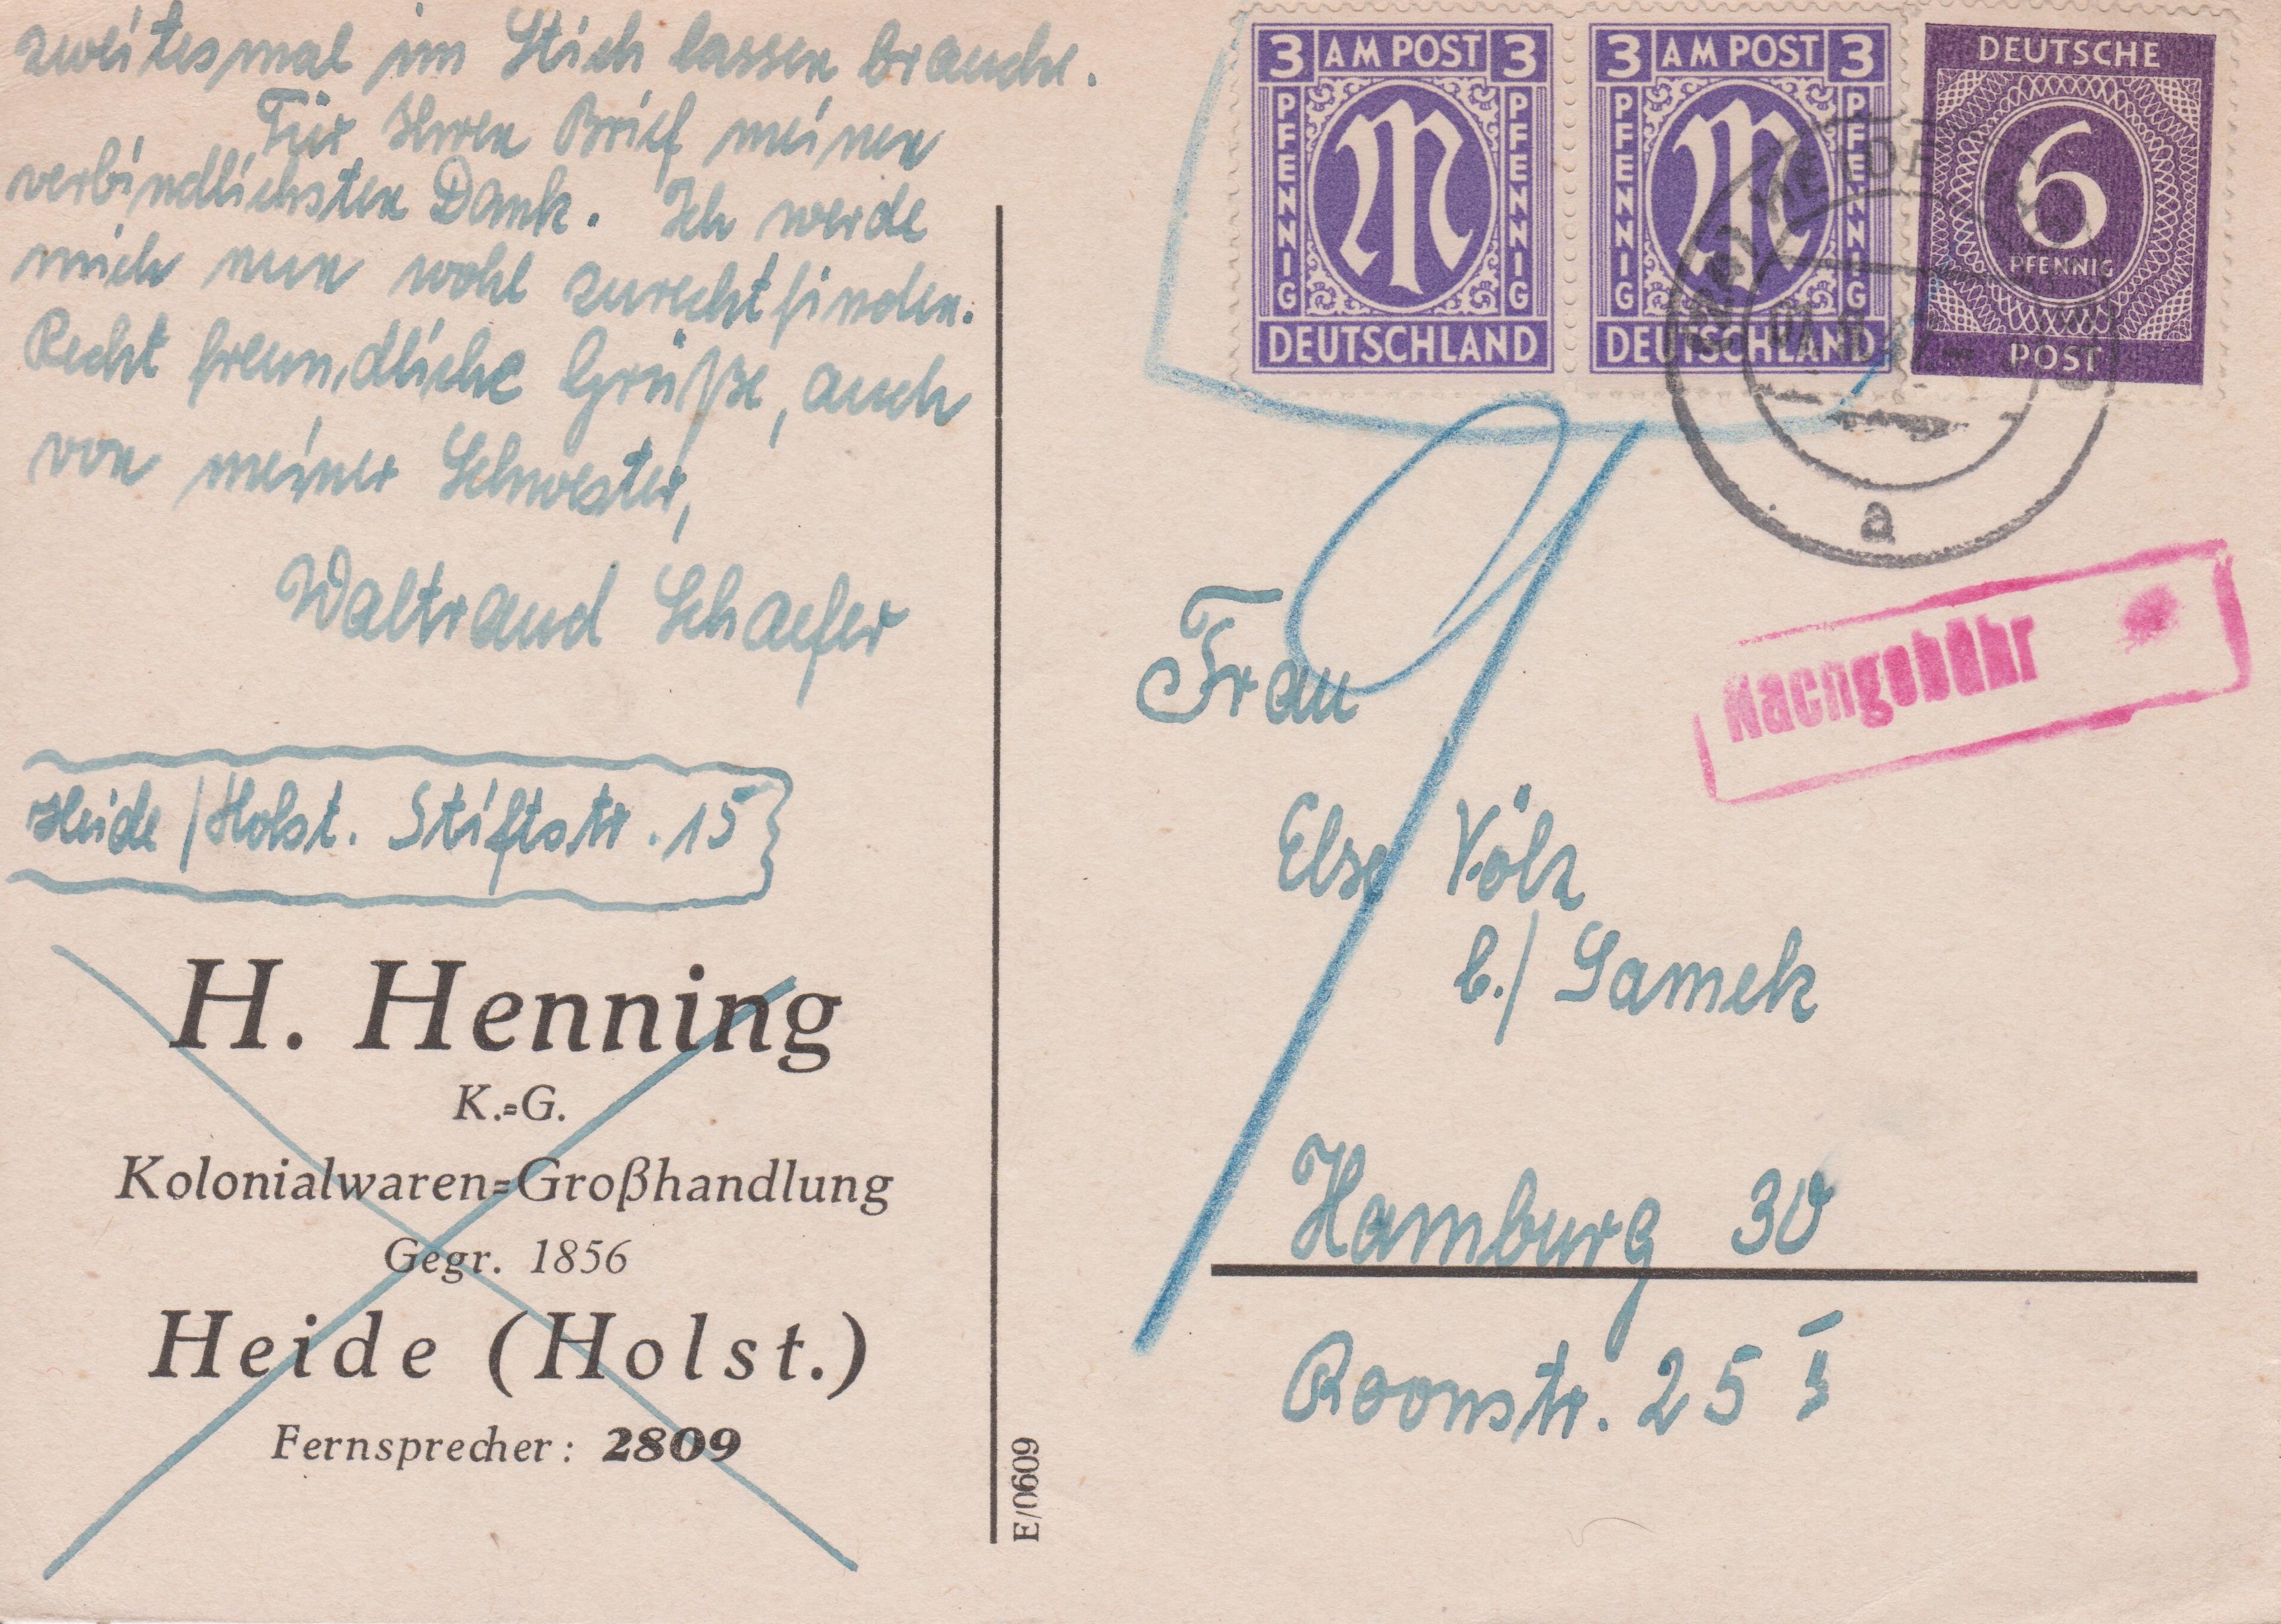 zweitesmal im Stich lassen brauche.
Für Ihren Brief meinen
verbindlichsten Dank. Ich werde
mich nun wohl zurechtfinden.
Recht freundliche Grüße, auch
von meiner Schwester,
Waltraud Schaefer
Heide / Holst. Stiftstr. 15
H. Henning
K.=G.
Kolonialwaren=Großhandlung
Gegr. 1856
Heide (Holst.)
Fernsprecher: 2809
E/0609
3 AM POST 3
PFENNIG PFENNIG
DEUTSCHLAND
3 AM POST 3
PFENNIG PFENNIG
DEUTSCHLAND
DEUTSCHE
6
PFENNIG
POST
HEIDE
a
Nachgebühr
9
Frau
Else Völz
b./ Samek
Hamburg 30
Roonstr. 25 I